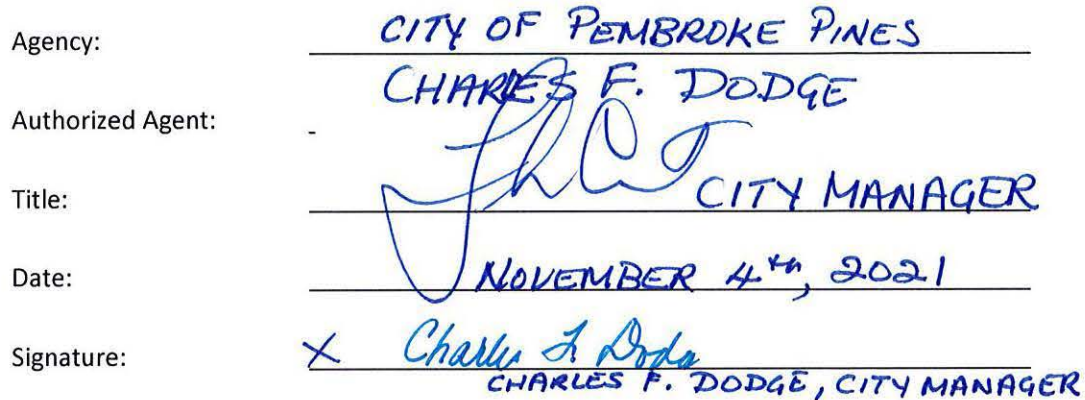 Agency: CITY OF PEMBROKE PINES
CHARLES F. DODGE
Authorized Agent: -
Title: CITY MANAGER
Date: NOVEMBER 4th, 2021
Signature: X Charles F. Dodge
CHARLES F. DODGE, CITY MANAGER